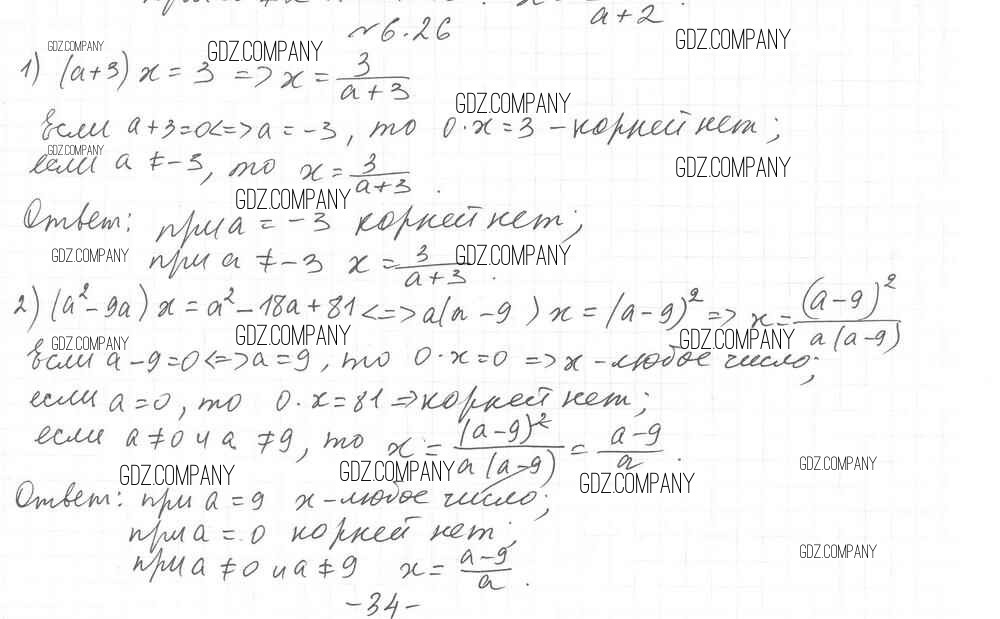 a+2
№6.26
GDZ.COMPANY GDZ.COMPANY GDZ.COMPANY
1) (a+3) x = 3 => x = 3/(a+3)
GDZ.COMPANY
Если a+3=0<=>a = -3, то 0·x=3 - корней нет;
GDZ.COMPANY GDZ.COMPANY
если a ≠ -3, то x = 3/(a+3).
GDZ.COMPANY
Ответ: при a = -3 корней нет;
GDZ.COMPANY GDZ.COMPANY
при a ≠ -3 x = 3/(a+3).
2) (a²-9a) x = a²-18a+81<=>a(a-9) x = (a-9)² => x = (a-9)²/(a(a-9))
GDZ.COMPANY GDZ.COMPANY GDZ.COMPANY
Если a-9=0<=>a=9, то 0·x=0 => x - любое число;
если a=0, то 0·x=81 => корней нет;
если a≠0 и a≠9, то x = (a-9)²/(a(a-9)) = (a-9)/a.
GDZ.COMPANY GDZ.COMPANY GDZ.COMPANY GDZ.COMPANY
Ответ: при a=9 x - любое число;
при a=0 корней нет;
GDZ.COMPANY
при a≠0 и a≠9 x = (a-9)/a.
-34-